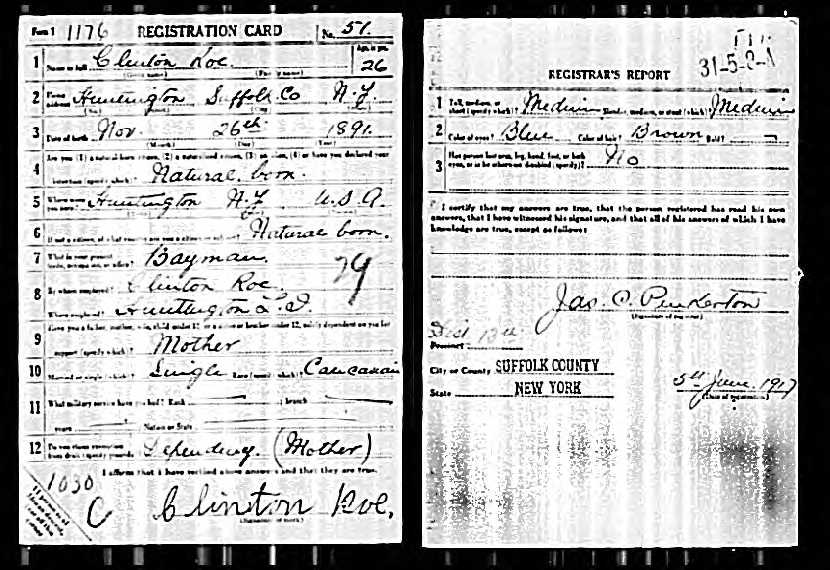 Form 1 1176 REGISTRATION CARD No. 51
1 Name in full Clinton Roe. Age, in yrs. 26
(Given name) (Family name)
2 Home address Huntington Suffolk Co N.Y.
3 Date of birth Nov. 26th 1891.
(Month) (Day) (Year)
4 Are you (1) a natural born citizen, (2) a naturalized citizen, (3) an alien, (4) or have you declared your
intention (specify which)? Natural born.
5 Where were you born? Huntington N.Y. U.S.A.
6 If not a citizen, of what country are you a citizen or subject? Natural born.
7 What is your present trade, occupation, or office? Bayman.
8 By whom employed? Clinton Roe. 29
Where employed? Huntington L.I.
9 Have you a father, mother, wife, child under 12, or a sister or brother under 12, solely dependent on you for
support (specify which)? Mother
10 Married or single (which)? Single Race (specify which)? Caucasain
11 What military service have you had? Rank branch
years Nation or State
12 Do you claim exemption from draft (specify grounds)? Dependency. (Mother)
I affirm that I have verified above answers and that they are true.
1030
C Clinton Roe.
(Signature or mark)
If person is of African descent, tear off this corner
31-5-2-A
REGISTRAR'S REPORT
1 Tall, medium, or short (specify which)? Medium Slender, medium, or stout (which)? Medium
2 Color of eyes? Blue Color of hair? Brown Bald?
3 Has person lost arm, leg, hand, foot, or both eyes, or is he otherwise disabled (specify)? No
I certify that my answers are true, that the person registered has read his own
answers, that I have witnessed his signature, and that all of his answers of which I have
knowledge are true, except as follows:
Jas. C. Pinkerton
(Signature of registrar)
Precinct
City or County SUFFOLK COUNTY
State NEW YORK 5th June. 1917
(Date of registration)